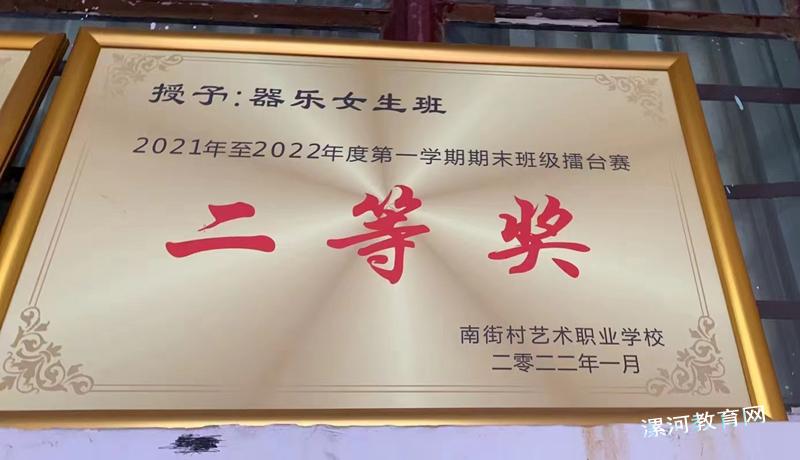 授予:器乐女生班
2021年至2022年度第一学期期末班级擂台赛
二等奖
南街村艺术职业学校
二零二二年一月
漯河教育网